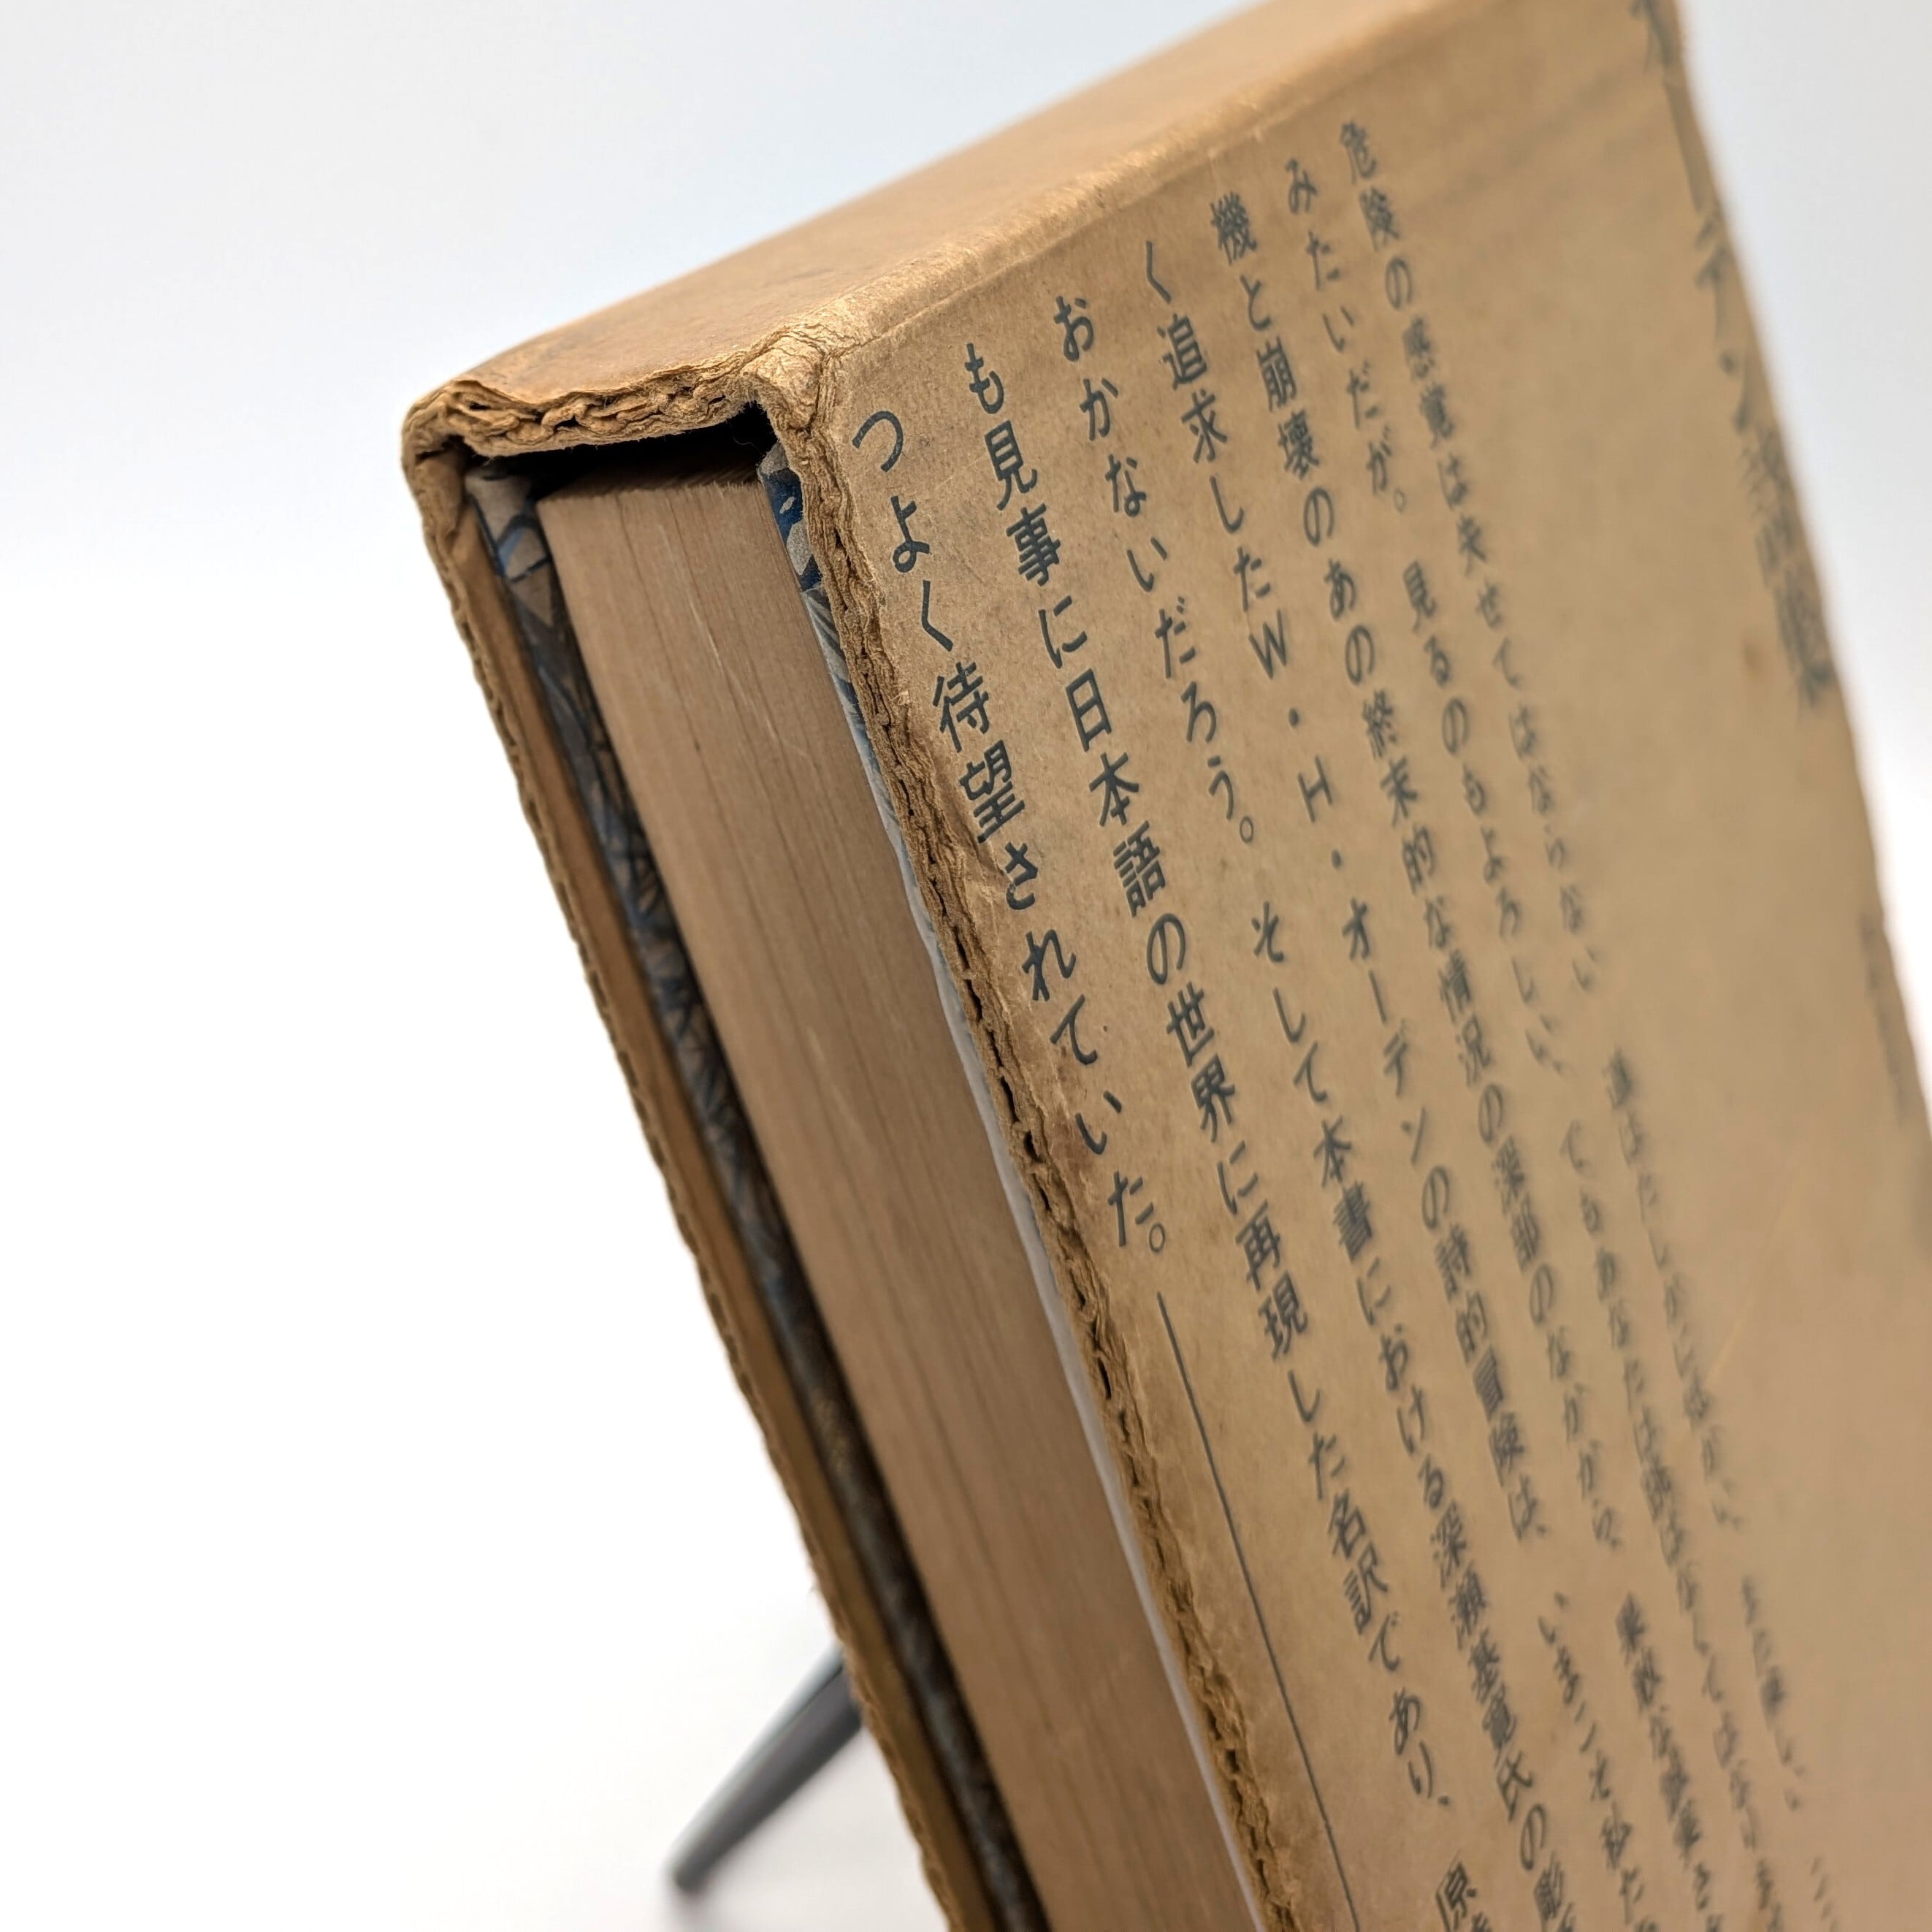 オーデン詩集
危険の感覚は失せてはならない 道はたしかに
みたいだが。 見るのもよろしい、でもあなたは跳ばなくてはなりません
機と崩壊のあの終末的な情況の深部のなかから、
く追求したW・H・オーデンの詩的冒険は、 いまこそ私たち
おかないだろう。そして本書における深瀬基寛氏の彫
も見事に日本語の世界に再現した名訳であり、原
つよく待望されていた。